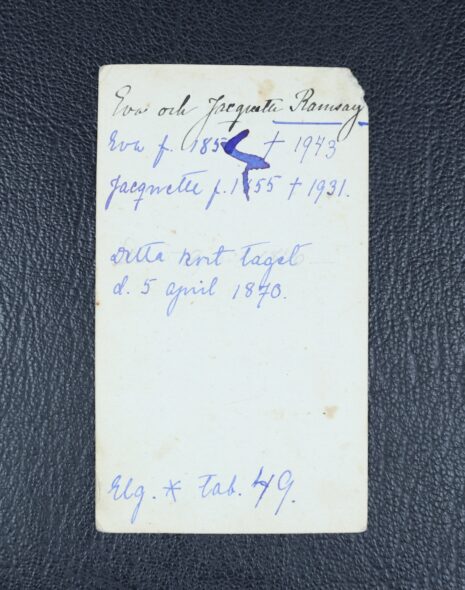 Eva och Jacquette Ramsay
Eva f. 185 † 1943
Jacquette f. 1855 † 1931.
Detta kort taget
d. 5 april 1870.
Elg. * Tab. 49.